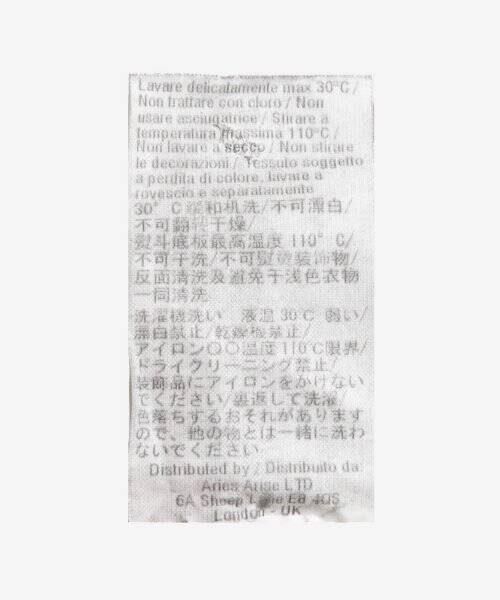 Lavare delicatamente max 30°C /
Non trattare con cloro / Non
usare asciugatrice / Stirare a
temperatura massima 110°C /
Non lavare a secco / Non stirare
le decorazioni / Tessuto soggetto
a perdita di colore, lavare a
rovescio e separatamente
30° C 缓和机洗/不可漂白/
不可翻转干燥/
熨斗底板最高温度 110° C/
不可干洗/不可熨烫装饰物/
反面清洗及避免于浅色衣物
一同清洗
洗濯機洗い 液温 30°C 弱い/
漂白禁止/乾燥機禁止/
アイロン 温度 110°C限界/
ドライクリーニング禁止/
装飾品にアイロンをかけない
でください/裏返して洗濯/
色落ちするおそれがあります
ので、他の物とは一緒に洗わ
ないでください
Distributed by / Distribuito da:
Aries Arise LTD
6A Sheep Lane E8 4QS
London - UK